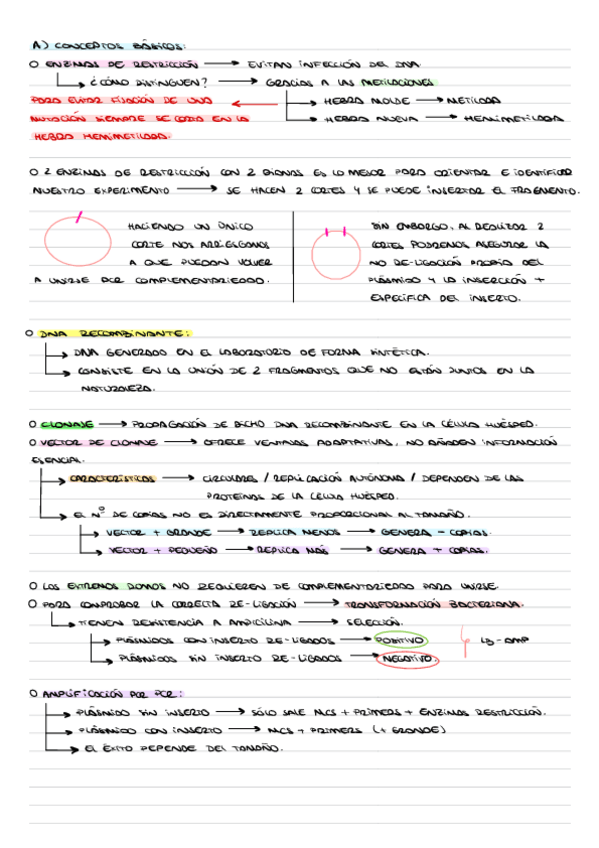 A) CONCEPTOS BÁSICOS:
O ENZIMAS DE RESTRICCIÓN → EVITAN INFECCIÓN DEL DNA.
↳ ¿CÓMO DISTINGUEN? → GRACIAS A LAS METILACIONES
PARA EVITAR FIJACIÓN DE UNA ← ↳ HEBRA MOLDE → METILADA
MUTACIÓN SIEMPRE SE CORTA EN LA ↳ HEBRA NUEVA → HEMIMETILADA
HEBRA HEMIMETILADA.
O 2 ENZIMAS DE RESTRICCIÓN CON 2 DIANAS ES LO MEJOR PARA ORIENTAR E IDENTIFICAR
NUESTRO EXPERIMENTO → SE HACEN 2 CORTES Y SE PUEDE INSERTAR EL FRAGMENTO.
HACIENDO UN ÚNICO
CORTE NOS ARRIESGAMOS
A QUE PUEDAN VOLVER
A UNIRSE POR COMPLEMENTARIEDAD.
SIN EMBARGO, AL REALIZAR 2
CORTES PODREMOS ASEGURAR LA
NO RE-LIGACIÓN PROPIA DEL
PLÁSMIDO Y LA INSERCIÓN +
ESPECÍFICA DEL INSERTO.
O DNA RECOMBINANTE:
↳ DNA GENERADO EN EL LABORATORIO DE FORMA SINTÉTICA.
↳ CONSISTE EN LA UNIÓN DE 2 FRAGMENTOS QUE NO ESTÁN JUNTOS EN LA
NATURALEZA.
O CLONAJE → PROPAGACIÓN DE DICHO DNA RECOMBINANTE EN LA CÉLULA HUÉSPED.
O VECTOR DE CLONAJE → OFRECE VENTAJAS ADAPTATIVAS, NO AÑADEN INFORMACIÓN
ESENCIAL.
↳ CARACTERÍSTICAS → CIRCULARES / REPLICACIÓN AUTÓNOMA / DEPENDEN DE LAS
PROTEÍNAS DE LA CÉLULA HUÉSPED.
↳ EL Nº DE COPIAS NO ES DIRECTAMENTE PROPORCIONAL AL TAMAÑO.
↳ VECTOR + GRANDE → REPLICA MENOS → GENERA - COPIAS.
↳ VECTOR + PEQUEÑO → REPLICA MÁS → GENERA + COPIAS.
O LOS EXTREMOS ROMOS NO REQUIEREN DE COMPLEMENTARIEDAD PARA UNIRSE.
O PARA COMPROBAR LA CORRECTA RE-LIGACIÓN → TRANSFORMACIÓN BACTERIANA.
↳ TIENEN RESISTENCIA A AMPICILINA → SELECCIÓN.
↳ PLÁSMIDOS CON INSERTO RE-LIGADOS → POSITIVO LB-AMP
↳ PLÁSMIDOS SIN INSERTO RE-LIGADOS → NEGATIVO.
O AMPLIFICACIÓN POR PCR:
↳ PLÁSMIDO SIN INSERTO → SÓLO SALE MCS + PRIMERS + ENZIMAS RESTRICCIÓN.
↳ PLÁSMIDO CON INSERTO → MCS + PRIMERS (+ GRANDE)
↳ EL ÉXITO DEPENDE DEL TAMAÑO.